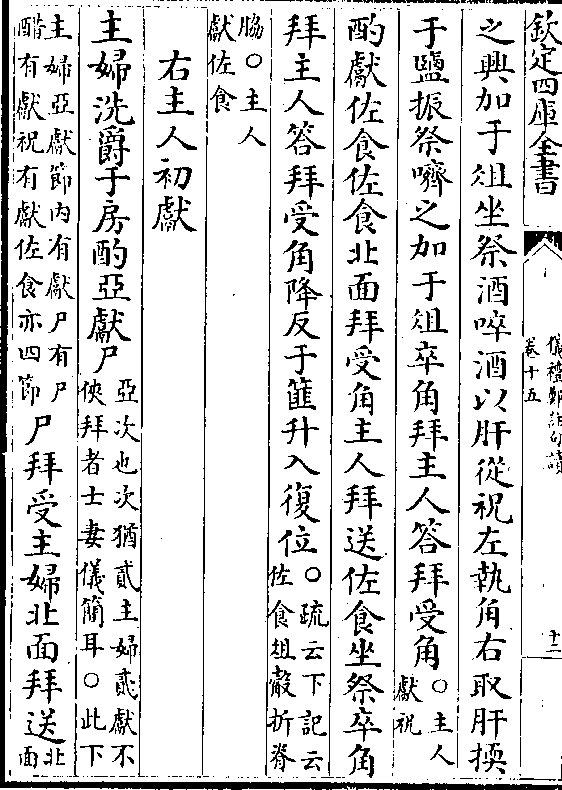 欽定四庫全書
儀禮鄭註句讀
卷十五
十二
之興加于俎坐祭酒啐酒以肝從祝左執角右取肝㨎
于鹽振祭嚌之加于俎卒角拜主人答拜受角○主人
獻祝
酌獻佐食佐食北面拜受角主人拜送佐食坐祭卒角
拜主人答拜受角降反于篚升入復位○疏云下記云
佐食俎觳折脊
脇○主人
獻佐食
右主人初獻
主婦洗爵于房酌亞獻尸亞次也次猶貳主婦貳獻不
俠拜者士妻儀簡耳○此下
主婦亞獻節內有獻尸有尸
酢有獻祝有獻佐食亦四節尸拜受主婦北面拜送北
面